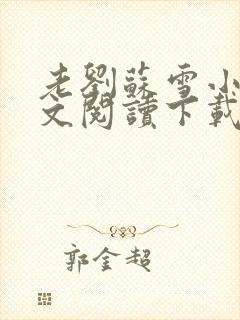 老劉蘇雪小
文閱讀下載
郭金超